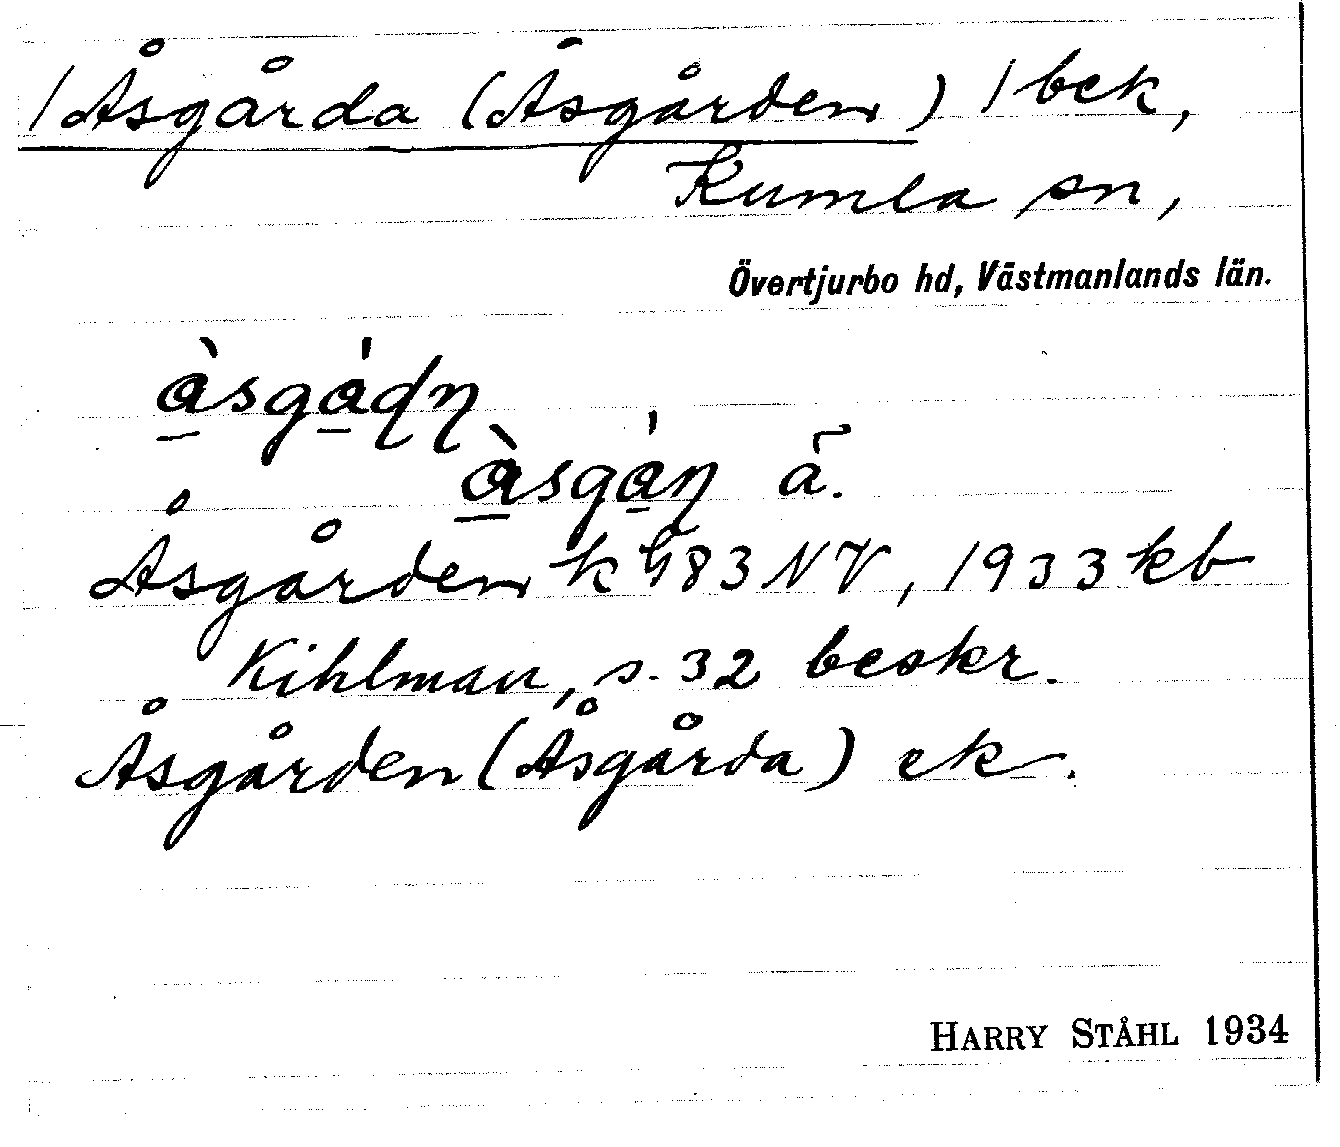 / Åsgårda (Åsgården) / bek,
Kumla sn,
Övertjurbo hd, Västmanlands län.
à̲sgá̲dn
à̲sgá̲n ä.
Åsgården k G83 NV, 1933 kb
Kihlman, s. 32 beskr.
Åsgården (Åsgårda) ek.
HARRY STÅHL 1934